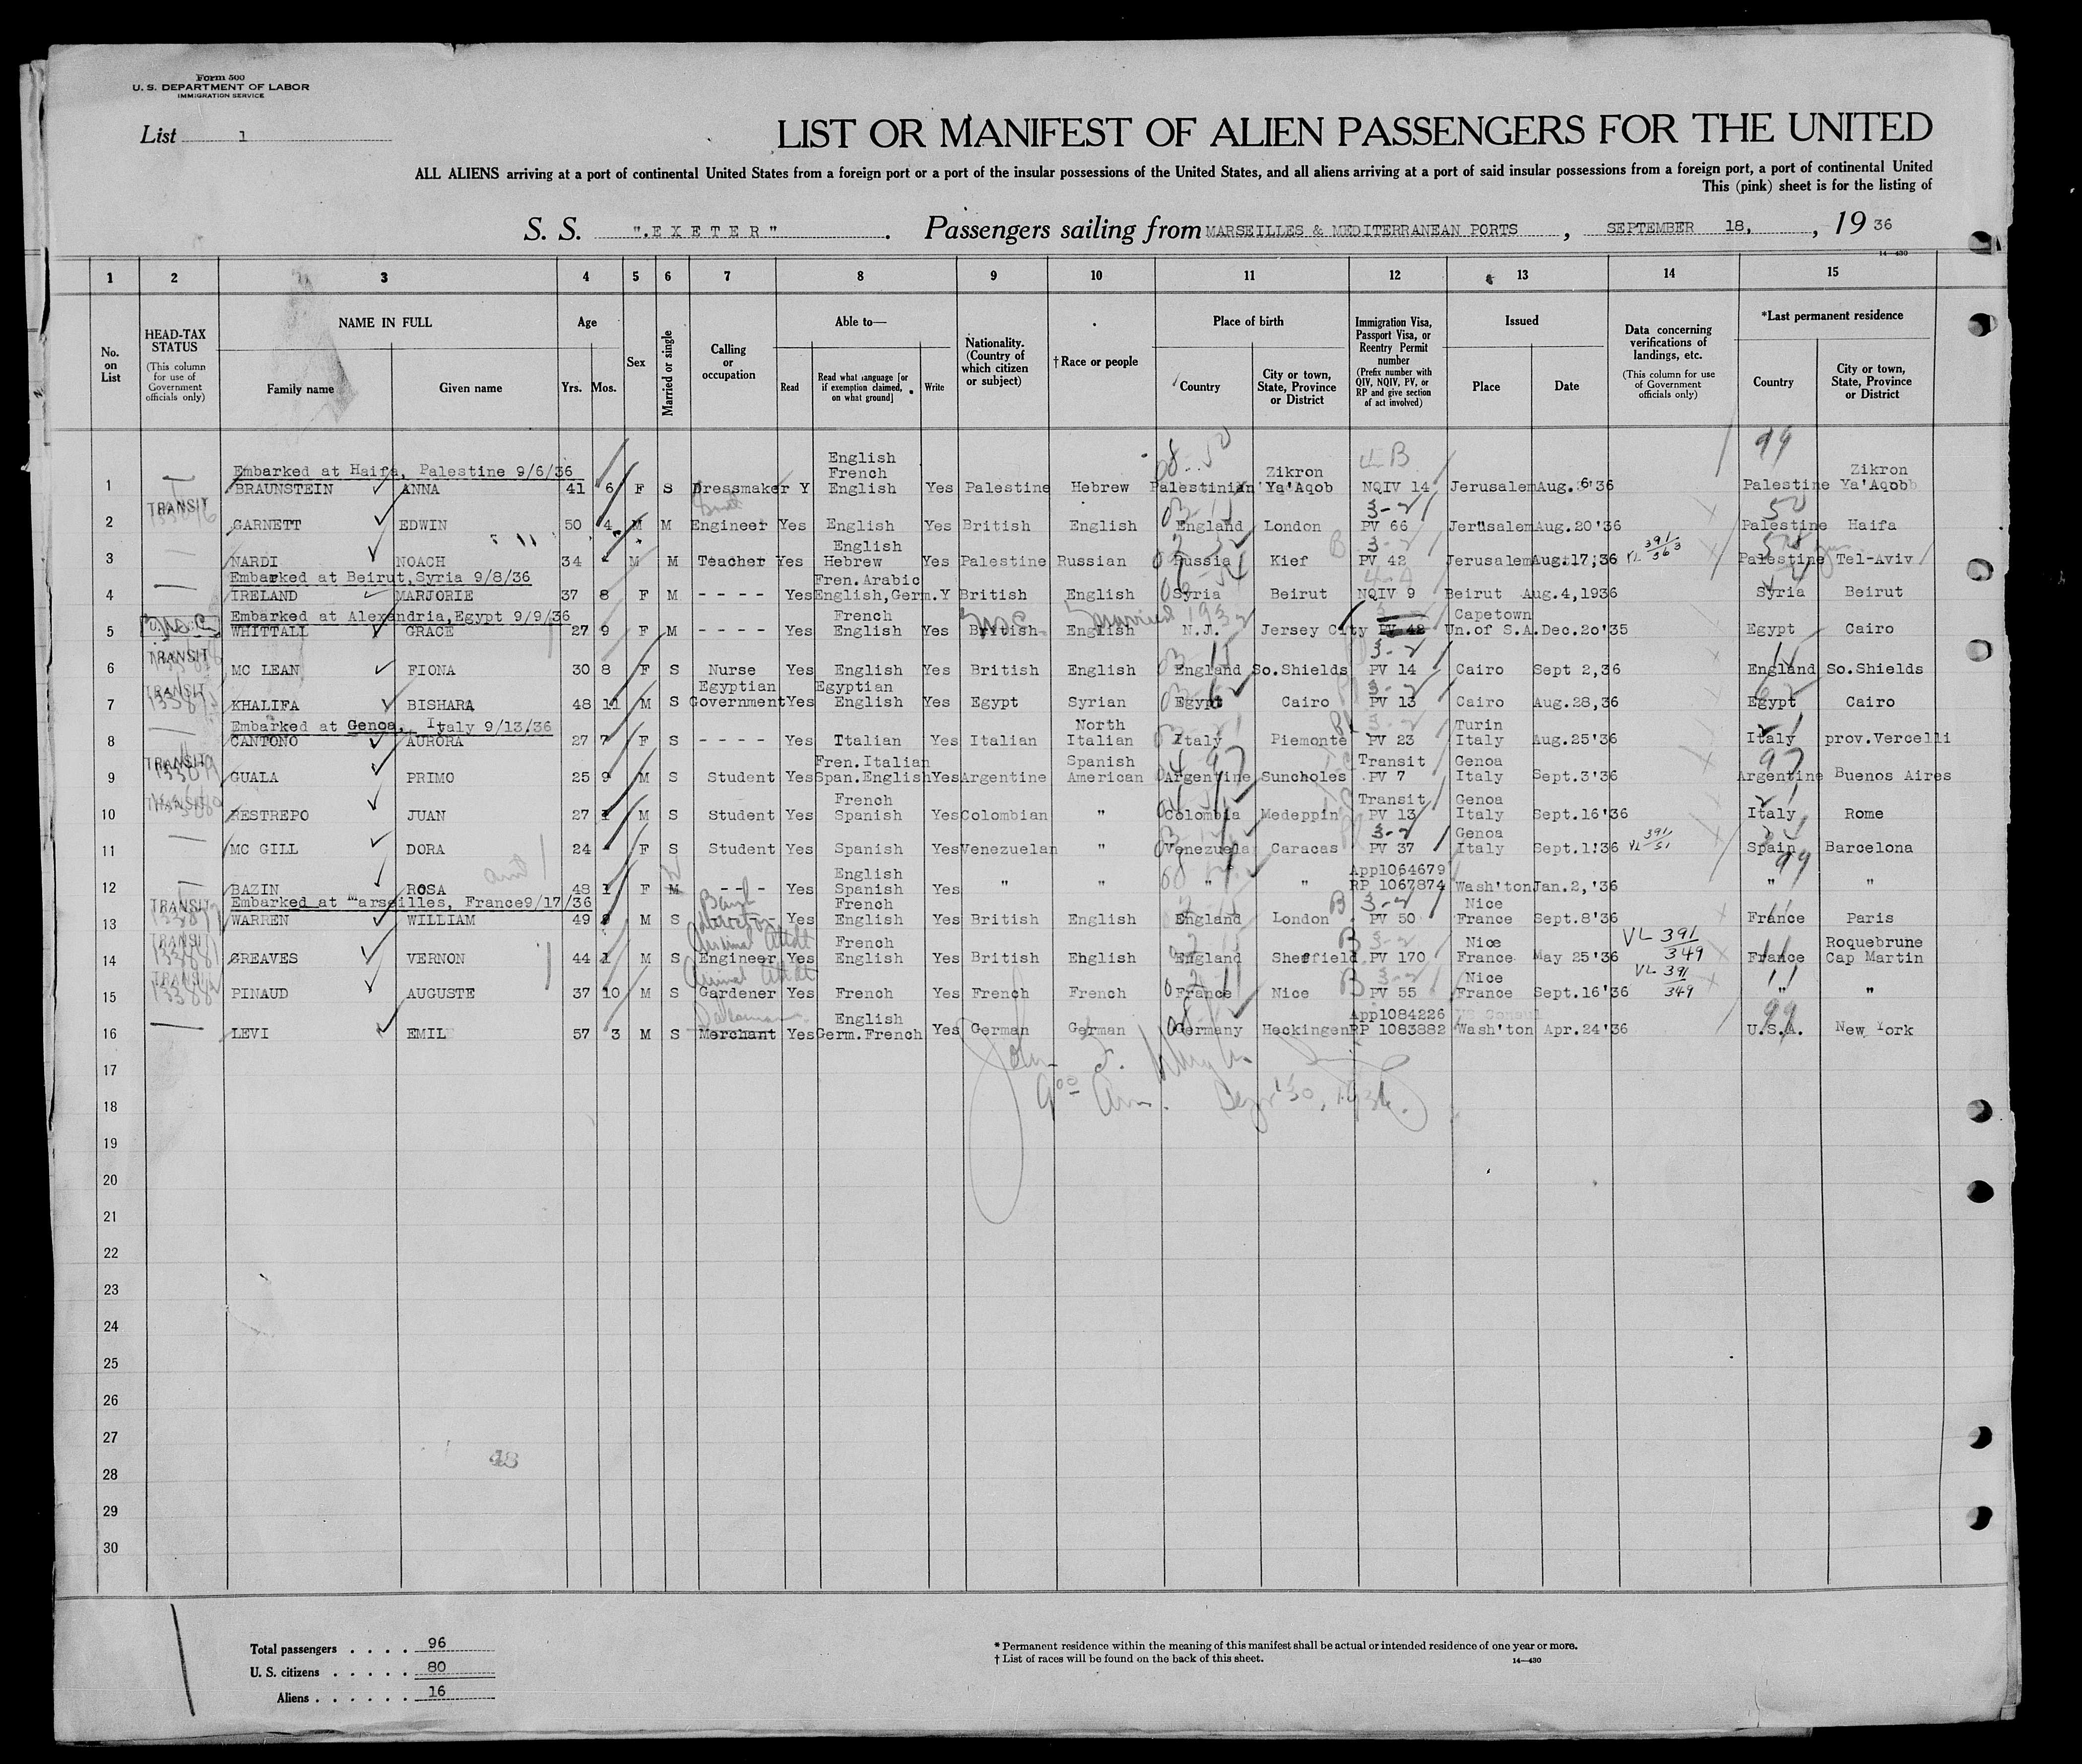 Form 500
U. S. DEPARTMENT OF LABOR
IMMIGRATION SERVICE
List 1
LIST OR MANIFEST OF ALIEN PASSENGERS FOR THE UNITED
ALL ALIENS arriving at a port of continental United States from a foreign port or a port of the insular possessions of the United States, and all aliens arriving at a port of said insular possessions from a foreign port, a port of continental United
This (pink) sheet is for the listing of
S. S. ".E X E T E R" . Passengers sailing from MARSEILLES & MEDITERRANEAN PORTS , SEPTEMBER 18, , 19 36
14—430
1 2 3 4 5 6 7 8 9 10 11 12 13 14 15
No. on List
HEAD-TAX STATUS (This column for use of Government officials only)
NAME IN FULL
Family name Given name
Age
Yrs. Mos.
Sex
Married or single
Calling or occupation
Able to—
Read
Read what language [or if exemption claimed, on what ground]
Write
Nationality. (Country of which citizen or subject)
†Race or people
Place of birth
Country
City or town, State, Province or District
Immigration Visa, Passport Visa, or Reentry Permit number (Prefix number with QIV, NQIV, PV, or RP and give section of act involved)
Issued
Place Date
Data concerning verifications of landings, etc. (This column for use of Government officials only)
*Last permanent residence
Country
City or town, State, Province or District
99
English
Embarked at Haifa, Palestine 9/6/36 French Zikron 4-B Zikron
1 BRAUNSTEIN ANNA 41 6 F S Dressmaker Y English Yes Palestine Hebrew Palestinian Ya'Aqob NQIV 14 Jerusalem Aug. 6'36 Palestine Ya'Aqob
TRANSIT 3-2 50
2 GARNETT EDWIN 50 4 M M Engineer Yes English Yes British English England London PV 66 Jerusalem Aug.20'36 Palestine Haifa
English 3-2 VL 391/563
3 NARDI NOACH 34 - M M Teacher Yes Hebrew Yes Palestine Russian Russia Kief PV 42 Jerusalem Aug.17;36 Palestine Tel-Aviv
Embarked at Beirut,Syria 9/8/36 Fren.Arabic
4 IRELAND MARJORIE 37 8 F M - - - - Yes English,Germ.Y British English Syria Beirut NQIV 9 Beirut Aug.4,1936 Syria Beirut
Embarked at Alexandria,Egypt 9/9/36 French married 1932 Capetown
5 WHITTALL GRACE 27 9 F M - - - - Yes English Yes British English N.J. Jersey City PV 42 Un.of S.A. Dec.20'35 Egypt Cairo
TRANSIT 3-2
6 MC LEAN FIONA 30 8 F S Nurse Yes English Yes British English England So.Shields PV 14 Cairo Sept 2,36 England So.Shields
TRANSIT Egyptian Egyptian 3-2
7 KHALIFA BISHARA 48 11 M S Government Yes English Yes Egypt Syrian Egypt Cairo PV 13 Cairo Aug.28,36 Egypt Cairo
Embarked at Genoa, Italy 9/13/36 North 3-2 Turin
8 CANTONO AURORA 27 7 F S - - - - Yes Italian Yes Italian Italian Italy Piemonte PV 23 Italy Aug.25'36 Italy prov.Vercelli
TRANSIT Fren.Italian Spanish Transit Genoa 97
9 GUALA PRIMO 25 9 M S Student Yes Span.English Yes Argentine American Argentine Suncholes PV 7 Italy Sept.3'36 Argentine Buenos Aires
TRANSIT French Transit Genoa
10 RESTREPO JUAN 27 1 M S Student Yes Spanish Yes Colombian " Colombia Medeppin PV 13 Italy Sept.16'36 Italy Rome
3-2 Genoa VL 391/51
11 MC GILL DORA 24 - F S Student Yes Spanish Yes Venezuelan " Venezuela Caracas PV 37 Italy Sept.1'36 Spain Barcelona
English App1064679 99
12 BAZIN ROSA 48 1 F M - - - Yes Spanish Yes " " " " RP 1067874 Wash'ton Jan.2,'36 " "
TRANSIT Embarked at Marseilles, France9/17/36 French B 3-2 Nice
13 WARREN WILLIAM 49 M S Yes English Yes British English England London PV 50 France Sept.8'36 France Paris
TRANSIT French B 3-2 Nice VL 391/349 Roquebrune
14 GREAVES VERNON 44 1 M S Engineer Yes English Yes British English England Sheffield PV 170 France May 25'36 France Cap Martin
TRANSIT B 3-2 Nice VL 391/349
15 PINAUD AUGUSTE 37 10 M S Gardener Yes French Yes French French France Nice PV 55 France Sept.16'36 " "
English App1084226 99
16 LEVI EMIL 57 3 M S Merchant Yes Germ.French Yes German German Germany Heckingen RP 1083882 Wash'ton Apr.24'36 U.S.A. New York
17
18
19
20
21
22
23
24
25
26
27
28
29
30
Total passengers . . . . 96
U. S. citizens . . . . . 80
Aliens . . . . . . 16
* Permanent residence within the meaning of this manifest shall be actual or intended residence of one year or more.
† List of races will be found on the back of this sheet. 14—430